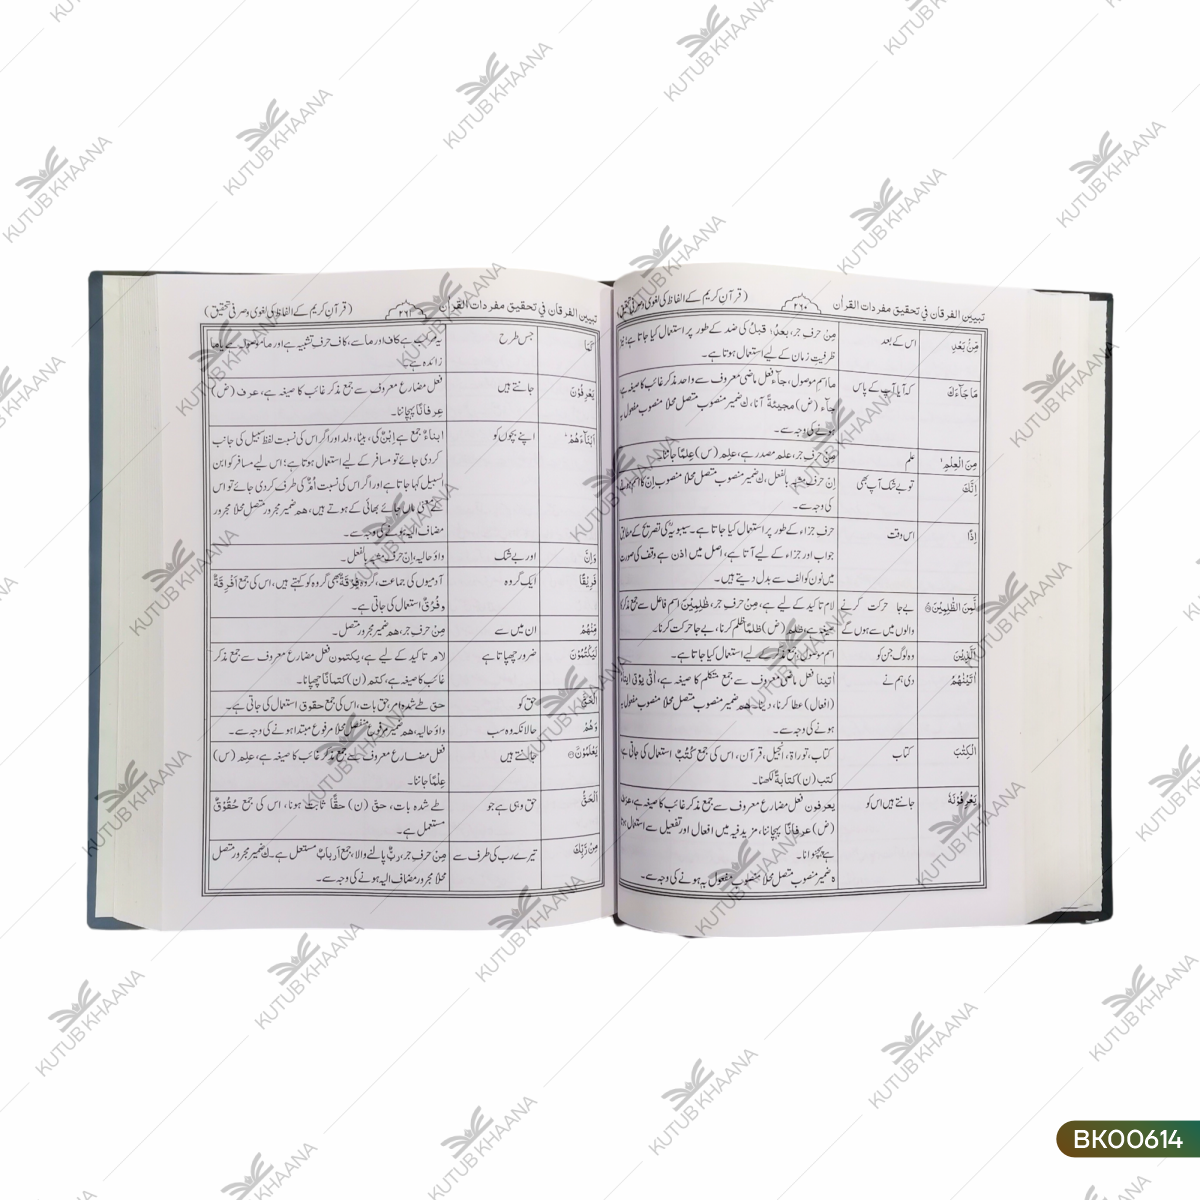 تبیین الفرقان فی تحقیق مفردات القرآن ۲۶۰ (قرآن کریم کے الفاظ کی لغوی وصرفی تحقیق)
مِنْ بَعْدِ اس کے بعد مِنْ حرفِ جر، بعدُ، قبلُ کی ضد کے طور پر استعمال کیا جاتا ہے
ظرفیت زمان کے لیے استعمال ہوتا ہے۔
مَا جَآءَكَ کہ آیا آپ کے پاس ما اسم موصول، جآء فعل ماضی معروف سے واحد مذکر غائب کا صیغہ ہے
جآء (ض) مجیئةً آنا، ك ضمیر منصوب متصل محلاً منصوب مفعول بہ
ہونے کی وجہ سے۔
مِنَ الْعِلْمِ علم مِنْ حرفِ جر، علم مصدر ہے، عَلِمَ (س) عِلْمًا جاننا۔
اِنَّكَ تو بے شک آپ بھی اِنَّ حرف مشبہ بالفعل، ك ضمیر منصوب متصل محلاً منصوب اِنَّ کا اسم ہونے
کی وجہ سے۔
اِذًا اس وقت حرفِ جزاء کے طور پر استعمال کیا جاتا ہے۔ سیبویہ کی تصریح کے مطابق
جواب اور جزاء کے لیے آتا ہے، اصل میں اذن ہے وقف کی صورت
میں نون کو الف سے بدل دیتے ہیں۔
لَّمِنَ الظّٰلِمِيْنَ بے جا حرکت کرنے لام تاکید کے لیے ہے، مِنْ حرفِ جر، ظٰلِمِيْنَ اسم فاعل سے جمع مذکر
والوں میں سے ہوں گے صیغہ ہے، ظلم (ض) ظلمًا ظلم کرنا، بے جا حرکت کرنا۔
اَلَّذِيْنَ وہ لوگ جن کو اسم موصول، جمع مذکر کے لیے استعمال کیا جاتا ہے۔
اٰتَيْنٰهُمُ دی ہم نے اٰتینا فعل ماضی معروف سے جمع متکلم کا صیغہ ہے، اٰتٰی یؤتی ایتاء
(افعال) عطا کرنا، دینا۔ ھم ضمیر منصوب متصل محلاً منصوب مفعول بہ
ہونے کی وجہ سے۔
الْكِتٰبَ کتاب کتاب، توراۃ، انجیل، قرآن، اس کی جمع كُتُبٌ استعمال کی جاتی ہے
کتب (ن) کتابةً لکھنا۔
يَعْرِفُوْنَهٗ جانتے ہیں اس کو یعرفون فعل مضارع معروف سے جمع مذکر غائب کا صیغہ ہے، عرف
(ض) عرفانًا پہچاننا، مزید فیہ میں افعال اور تفعیل سے استعمال ہوتا
ہے پہچنوانا۔
ہ ضمیر منصوب متصل محلاً منصوب مفعول بہ ہونے کی وجہ سے۔
تبیین الفرقان فی تحقیق مفردات القرآن ۲۶۱ (قرآن کریم کے الفاظ کی لغوی وصرفی تحقیق)
كَمَا جس طرح یہ مرکب ہے کاف اور ما سے، کاف حرفِ تشبیہ ہے اور ما موصولہ ہے یا ما
زائدہ ہے۔
يَعْرِفُوْنَ جانتے ہیں فعل مضارع معروف سے جمع مذکر غائب کا صیغہ ہے، عرف (ض)
عرفانًا پہچاننا۔
اَبْنَآءَهُمْ اپنے بچوں کو ابناءٌ جمع ہے اِبْنٌ کی، بیٹا، ولد اور اگر اس کی نسبت لفظ سبیل کی جانب
کردی جائے تو مسافر کے لیے استعمال ہوتا ہے؛ اس لیے مسافر کو ابن
السبیل کہا جاتا ہے اور اگر اس کی نسبت اُمٌّ کی طرف کردی جائے تو اس
کے معنی ماں جائے بھائی کے ہوتے ہیں، ھم ضمیر مجرور متصل محلاً مجرور
مضاف الیہ ہونے کی وجہ سے۔
وَاِنَّ اور بے شک واؤ حالیہ، اِنَّ حرف مشبہ بالفعل۔
فَرِيْقًا ایک گروہ آدمیوں کی جماعت، گروہ، فِرْقَةٌ بھی گروہ کو کہتے ہیں، اس کی جمع اَفْرِقَةٌ
و فُرُقٌ استعمال کی جاتی ہے۔
مِّنْهُمْ ان میں سے مِنْ حرفِ جر، ھم ضمیر مجرور متصل۔
لَيَكْتُمُوْنَ ضرور چھپاتا ہے لام تاکید کے لیے ہے، یکتمون فعل مضارع معروف سے جمع مذکر
غائب کا صیغہ ہے، کتم (ن) کتمانًا چھپانا۔
الْحَقَّ حق کو حق طے شدہ امر، حق بات، اس کی جمع حقوق استعمال کی جاتی ہے۔
وَهُمْ حالانکہ وہ سب واؤ حالیہ، ھم ضمیر مرفوع منفصل محلاً مرفوع مبتدا ہونے کی وجہ سے۔
يَعْلَمُوْنَ جانتے ہیں فعل مضارع معروف سے جمع مذکر غائب کا صیغہ ہے، عَلِمَ (س)
عِلْمًا جاننا۔
اَلْحَقُّ حق وہی ہے جو طے شدہ بات، حق (ن) حقًّا ثابت ہونا، اس کی جمع حُقُوْقٌ
مستعمل ہے۔
مِنْ رَّبِّكَ تیرے رب کی طرف سے مِنْ حرفِ جر، ربٌّ پالنے والا، جمع اَربابٌ مستعمل ہے۔ ك ضمیر مجرور متصل
محلاً مجرور مضاف الیہ ہونے کی وجہ سے۔
KUTUB KHAANA
BK00614